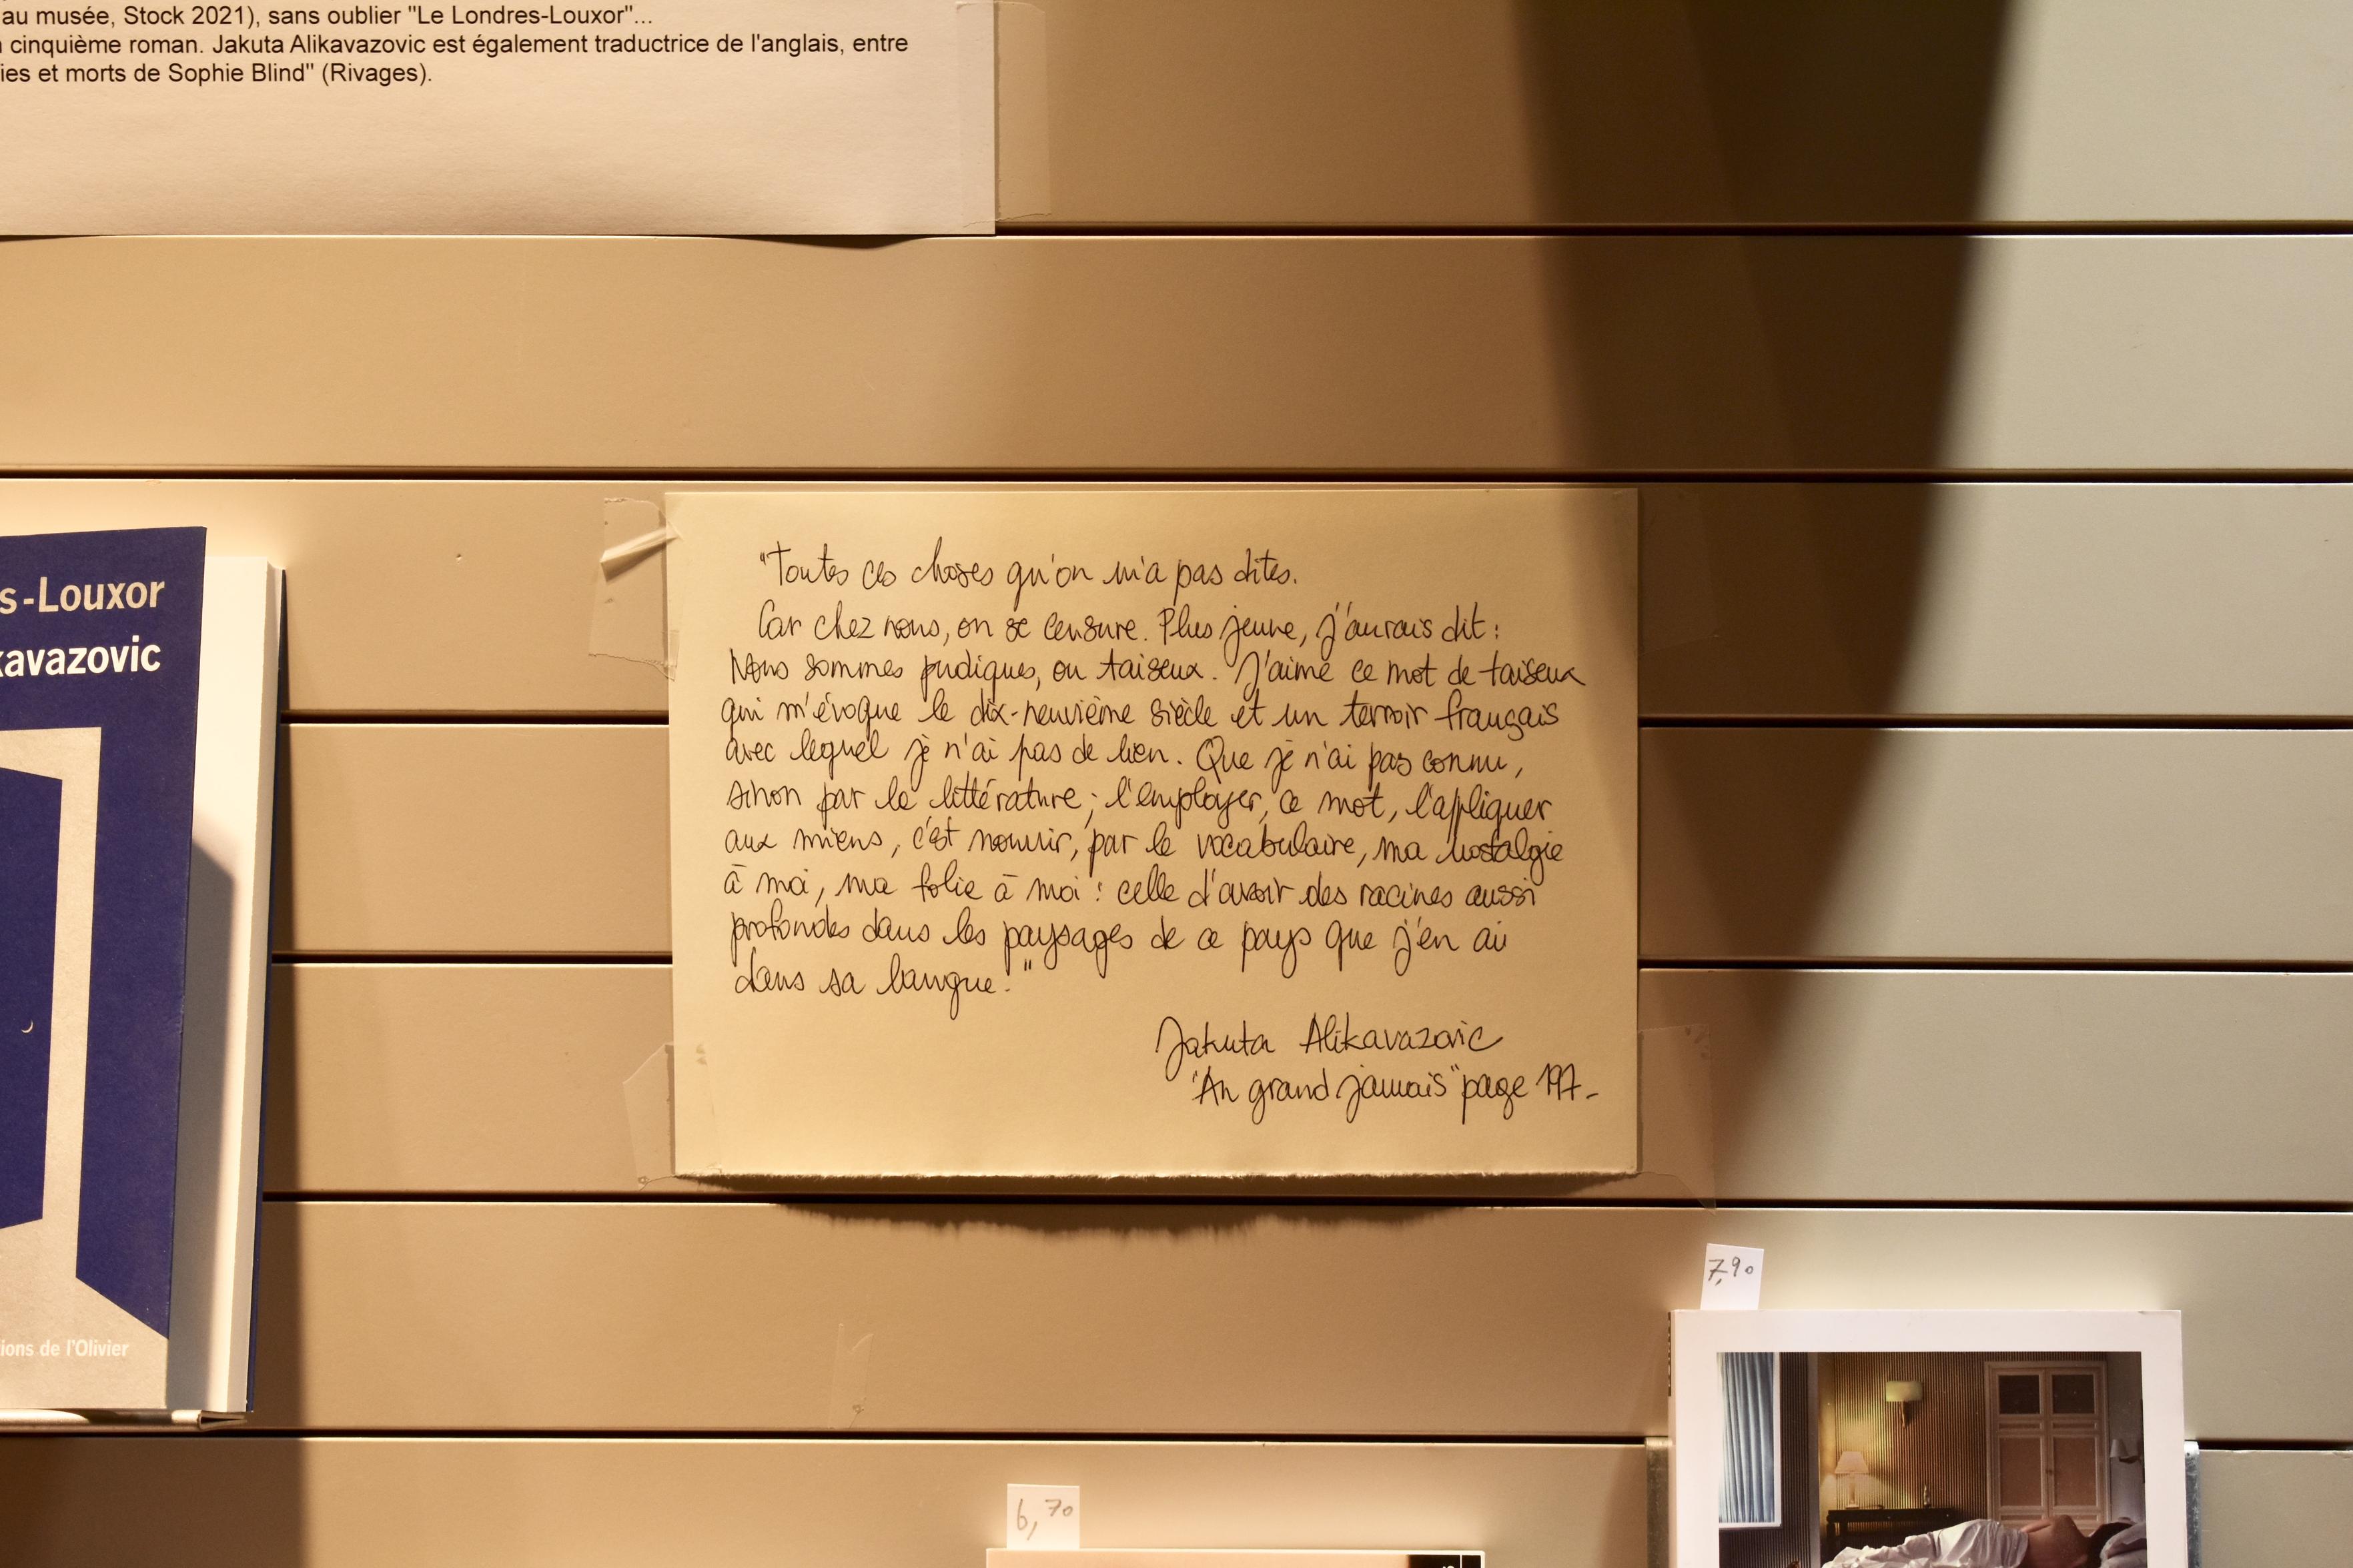 au musée, Stock 2021), sans oublier "Le Londres-Louxor"...
cinquième roman. Jakuta Alikavazovic est également traductrice de l'anglais, entre
ies et morts de Sophie Blind" (Rivages).
s-Louxor
kavazovic
ions de l'Olivier
"Toutes ces choses qu'on m'a pas dites.
Car chez nous, on se censure. Plus jeune, j'aurais dit :
Nous sommes pudiques, ou taiseux. J'aime ce mot de taiseux
qui m'évoque le dix-neuvième siècle et un terroir français
avec lequel je n'ai pas de lien. Que je n'ai pas connu,
sinon par la littérature ; l'employer, ce mot, l'appliquer
aux miens, c'est nourrir, par le vocabulaire, ma nostalgie
à moi, ma folie à moi : celle d'avoir des racines aussi
profondes dans les paysages de ce pays que j'en ai
dans sa langue."
Jakuta Alikavazovic
"Au grand jamais" page 197.
7,90
6,70